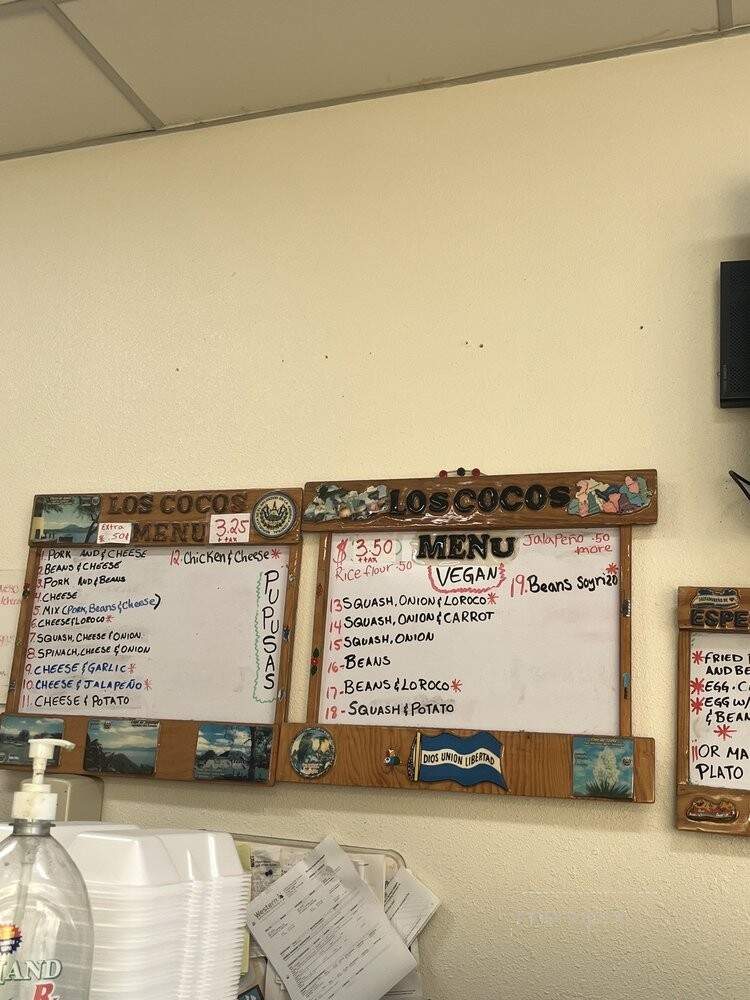 LOS COCOS
MENU
Extra
.50¢
3.25
+tax
1. PORK AND & CHEESE
2. BEANS & CHEESE
3. PORK AND & BEANS
4. CHEESE
5. MIX (PORK, BEANS & CHEESE)
6. CHEESE & LOROCO*
7. SQUASH, CHEESE & ONION
8. SPINACH, CHEESE & ONION
9. CHEESE & GARLIC*
10. CHEESE & JALAPEÑO*
11. CHEESE & POTATO
12. CHICKEN & CHEESE*
PUPUSAS
LOS COCOS
MENU
$3.50
+tax
Rice flour .50
VEGAN
Jalapeño .50
more
13 SQUASH, ONION & LOROCO*
14 SQUASH, ONION & CARROT
15 SQUASH, ONION
16- BEANS
17- BEANS & LOROCO*
18- SQUASH & POTATO
19. Beans Soyrizo*
DIOS UNION LIBERTAD
ESPE
*FRIED
AND BE
*EGG. C
*EGG W/
& BEAN
*
OR MA
PLATO
Western
HAND